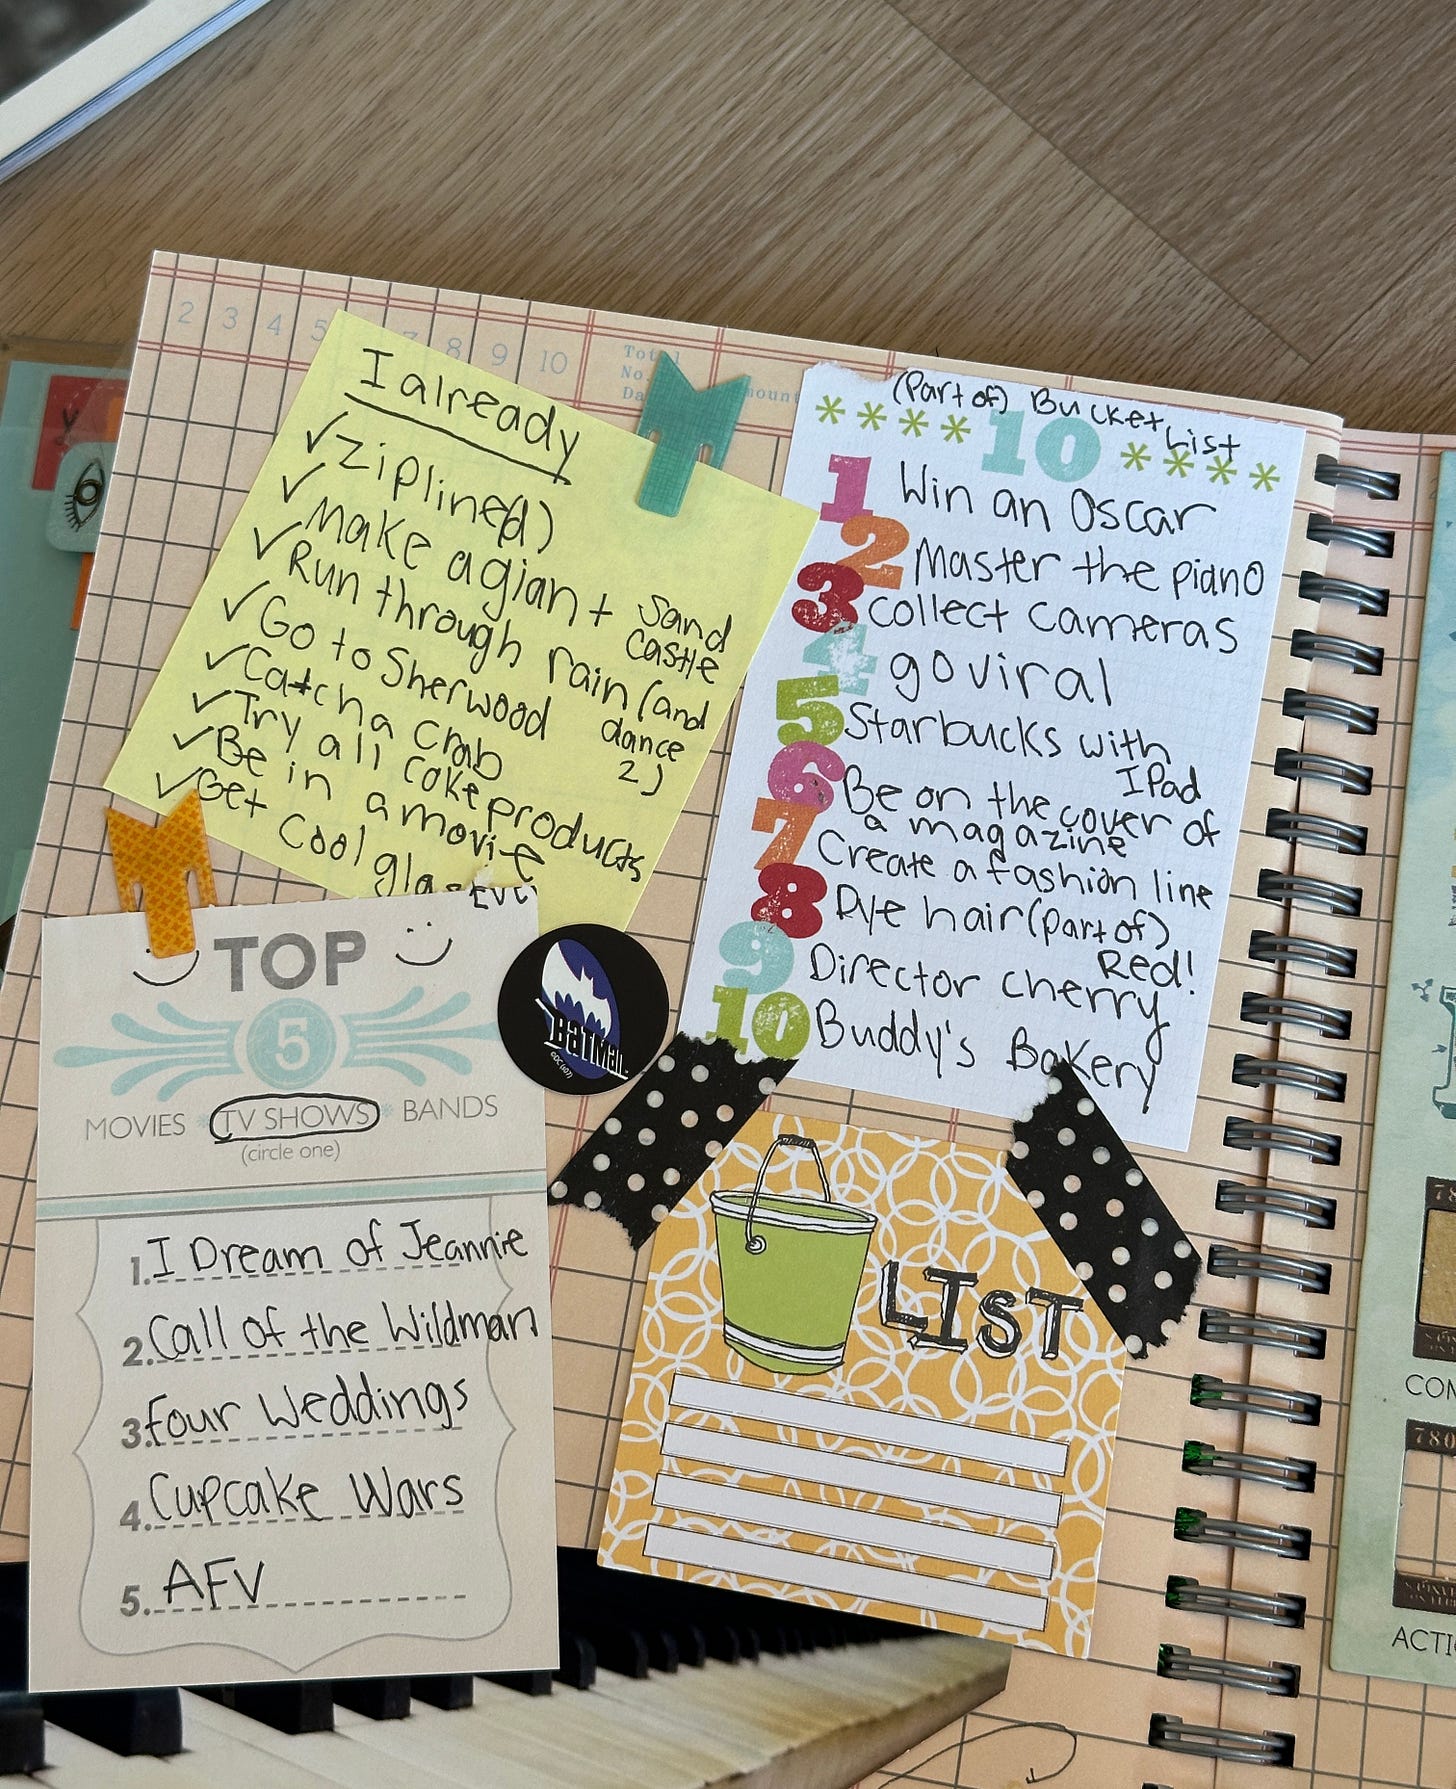 2 3 4 5 7 8 9 10
No.
I already
✓ Zipline(d)
✓ Make a giant sand
castle
✓ Run through rain (and
dance
2)
✓ Go to Sherwood
✓ Catch a crab
✓ Try all cake products
✓ Be in a movie
✓ Get cool
(Part of) Bucket List
**** 10 ****
1 Win an Oscar
2 Master the piano
3 collect cameras
4 go viral
5 Starbucks with
IPad
6 Be on the cover of
a magazine
7 Create a fashion line
8 Dye hair (part of)
Red!
9 Director cherry
10 Buddy's Bakery
TOP
5
MOVIES * TV SHOWS * BANDS
(circle one)
1. I Dream of Jeannie
2. Call of the Wildman
3. Four Weddings
4. Cupcake Wars
5. AFV
BATMAN
LIST